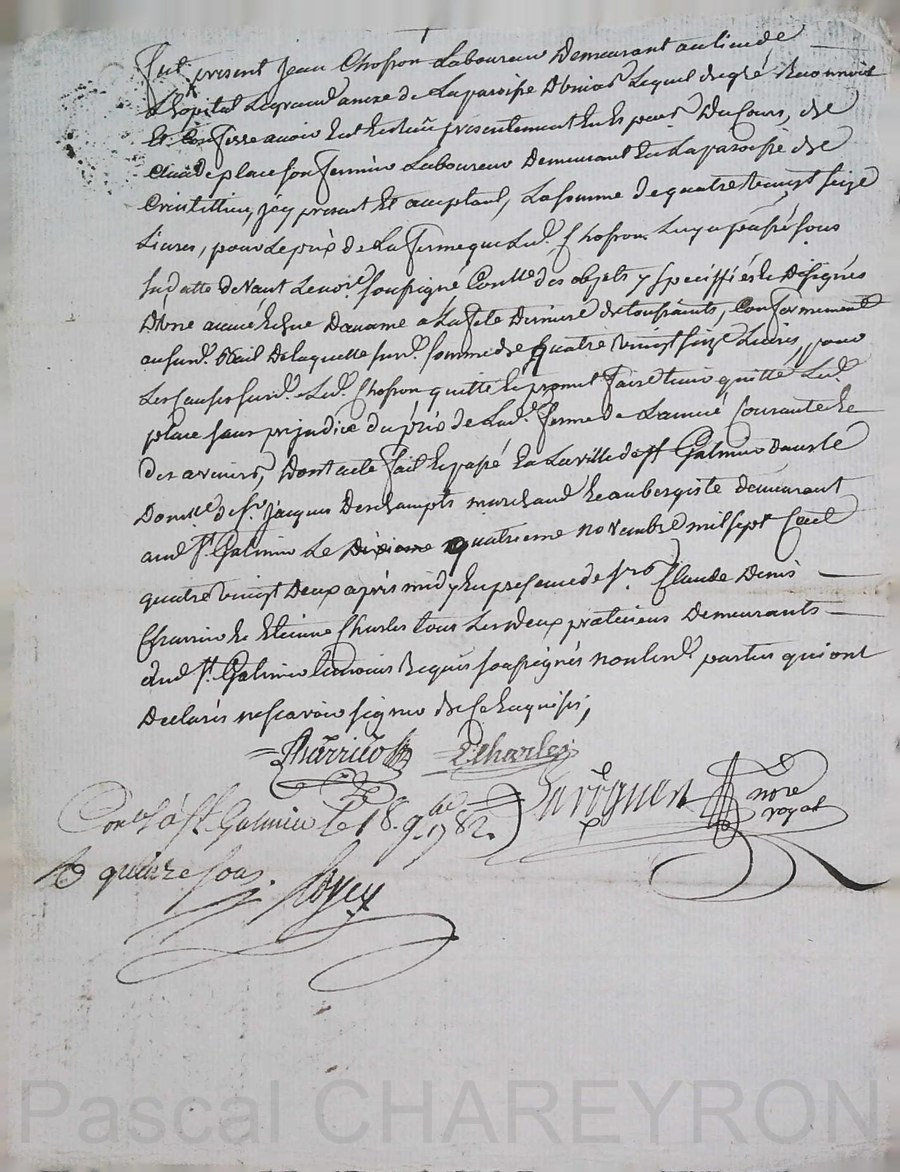 fut present jean Chosson Laboureur Demeurant au lieu de
L'hopital Legrand anexe de La paroisse D'unias Lequel de gré Reconnoit
Et Confesse avoir Eu et Reçeu présentement En Especes Du Cours, de
Claude place son fermier Laboureur Demeurant En La paroisse de
present Et acceptant, La somme de quatre vingt seize
Livres, pour Le prix de La ferme que Lud. Chosson Luy a passé sous
sa datte devant Le no.re soussigné Contte des objets y speciffiés et Désignés
D'une année Echue Davance a La fete Derniere de toussaints, Conformement
au susd. Bail De Laquelle susd. somme de quatre vingt seize Livres, pour
Les Causes susd. Lud. Chosson quitte Et promet faire tenir quitte Lud.
place sans prejudice du prix de Lad. ferme de L'année Courante Et
des avenirs, Dont acte fait Et passé En La ville de St Galmier dans Le
Domlle de Sr. Jacques Deschampts marchand Et aubergiste demeurant
aud. St. Galmier Le Dixieme quatrieme novembre mil sept Cent
quatre vingt Deux après midy En presence de Srs Claude Denis
Et Etienne Charles tous Les deux praticiens Demeurants
aud. St. Galmier témoins Requis soussignés non Lesd. parties qui ont
Declarés ne scavoir signer de Ce Enquises,
E. Charles
no.re
royal
Con.lé à St. Galmier Le 18. 9.bre 1782.
R quinze sous.
Pascal CHAREYRON